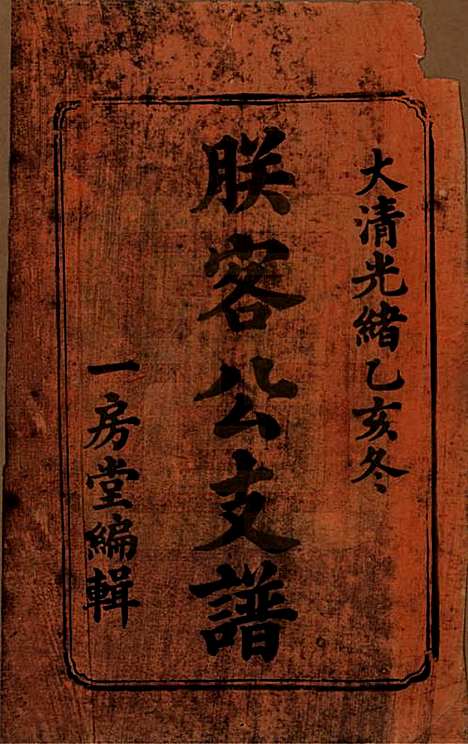 大清光緒乙亥冬
朕客公支譜
一房堂編輯